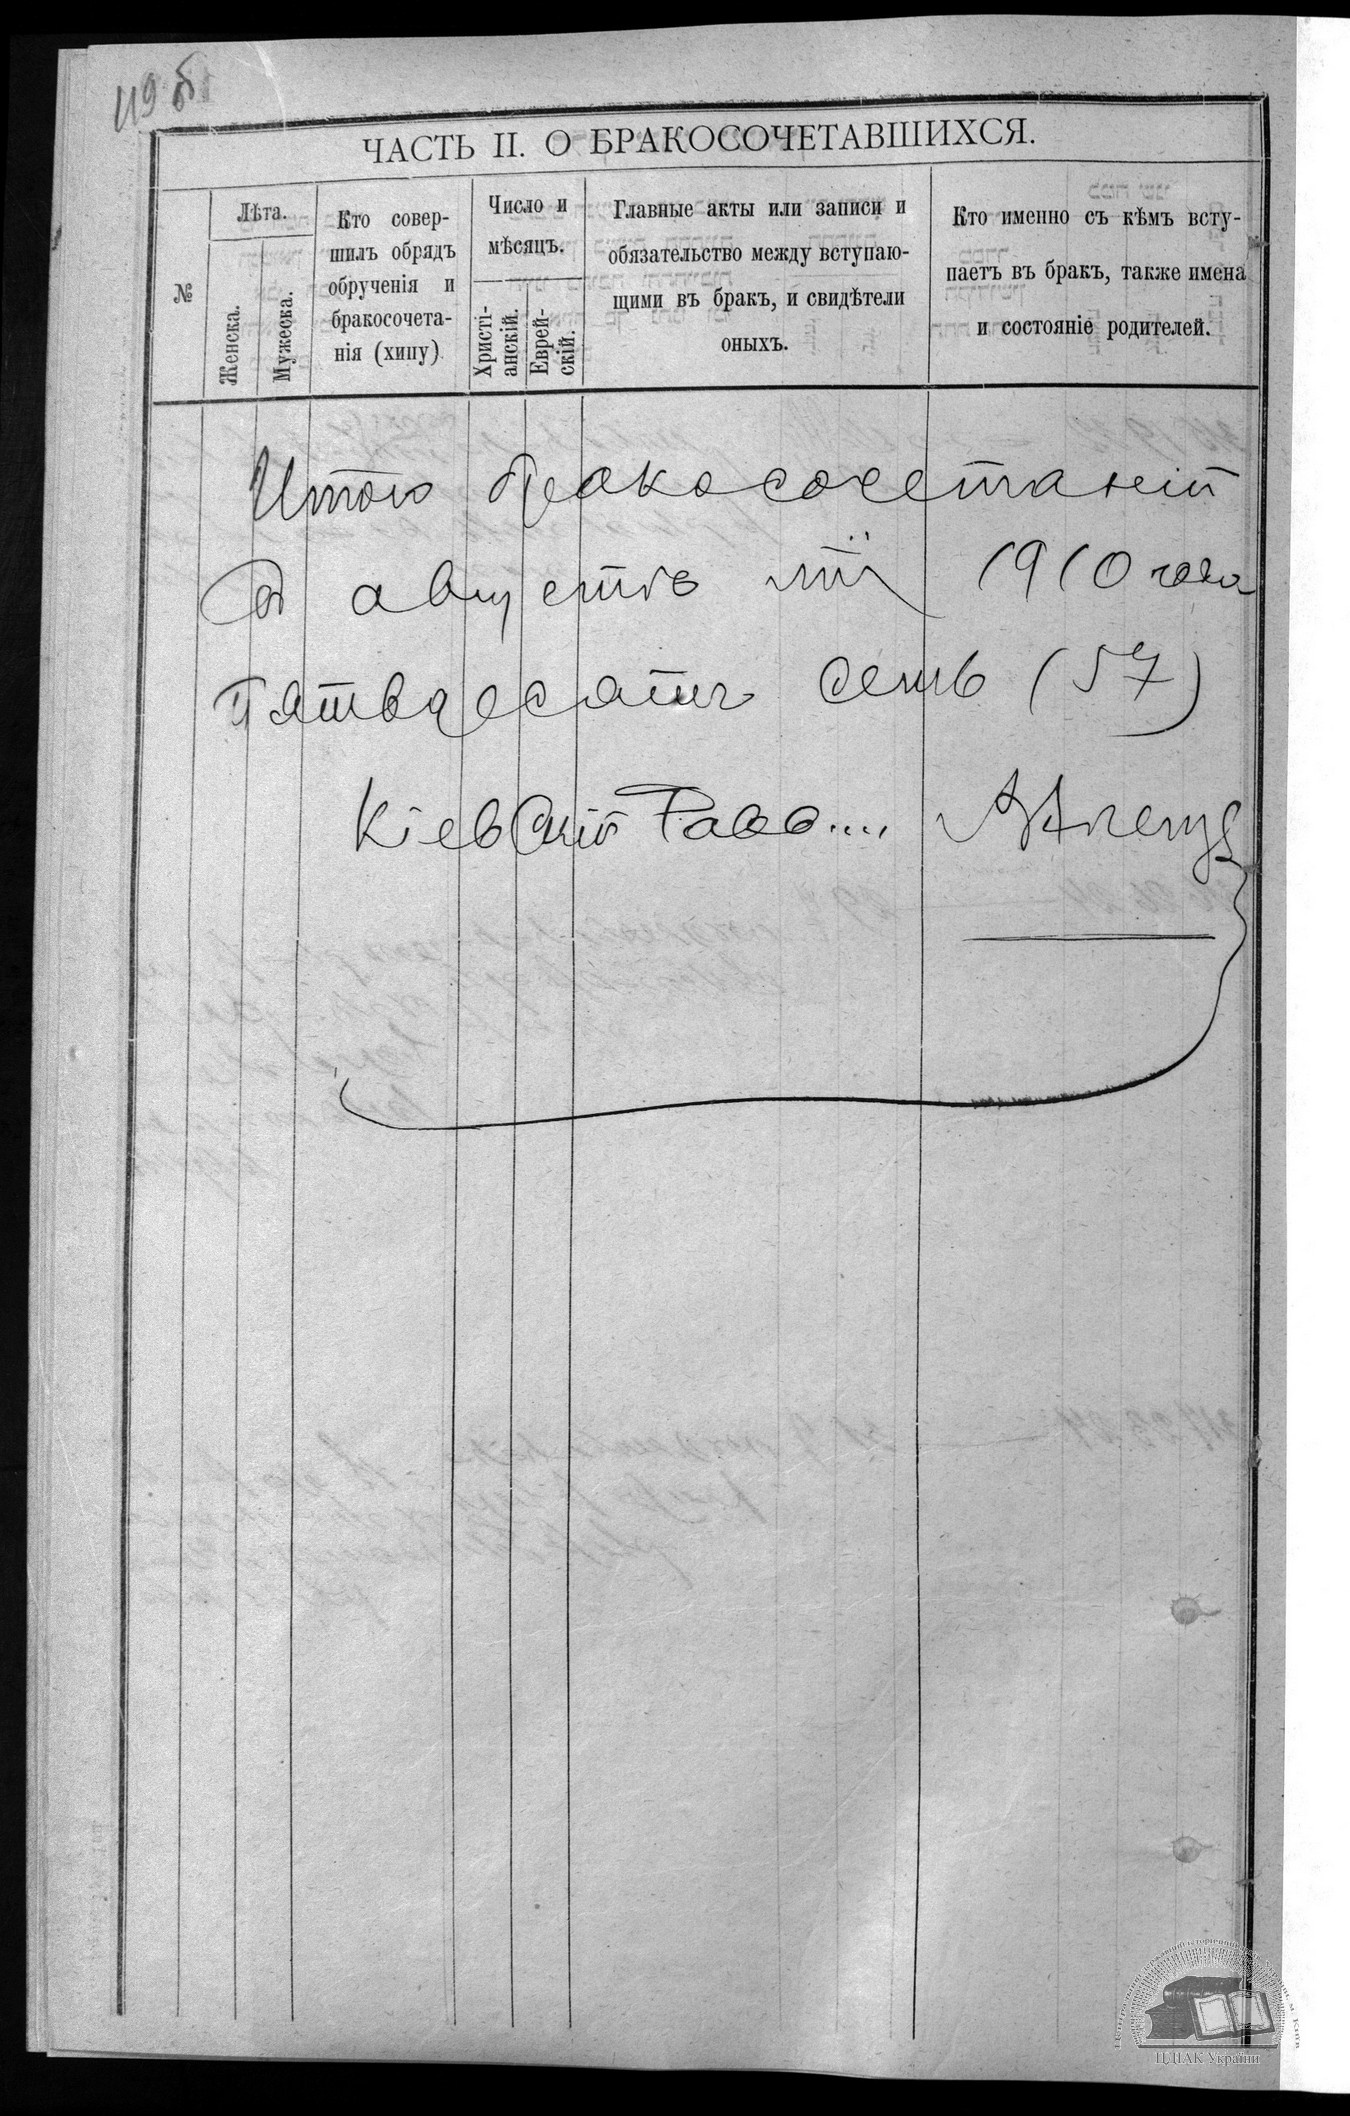 119 об
ЧАСТЬ II. О БРАКОСОЧЕТАВШИХСЯ.
№
Лѣта.
Женска.
Мужеска.
Кто совер-
шилъ обрядъ
обрученія и
бракосочета-
нія (хипу)
Число и
мѣсяцъ.
Христі-
анскій.
Еврей-
скій.
Главные акты или записи и
обязательство между вступаю-
щими въ бракъ, и свидѣтели
оныхъ.
Кто именно съ кѣмъ всту-
паетъ въ бракъ, также имена
и состояніе родителей.
Итого бракосочетаній
въ августѣ 1910 года
Пятьдесятъ семь (57)
Кіевскій Рабб....
ЦДІАК України